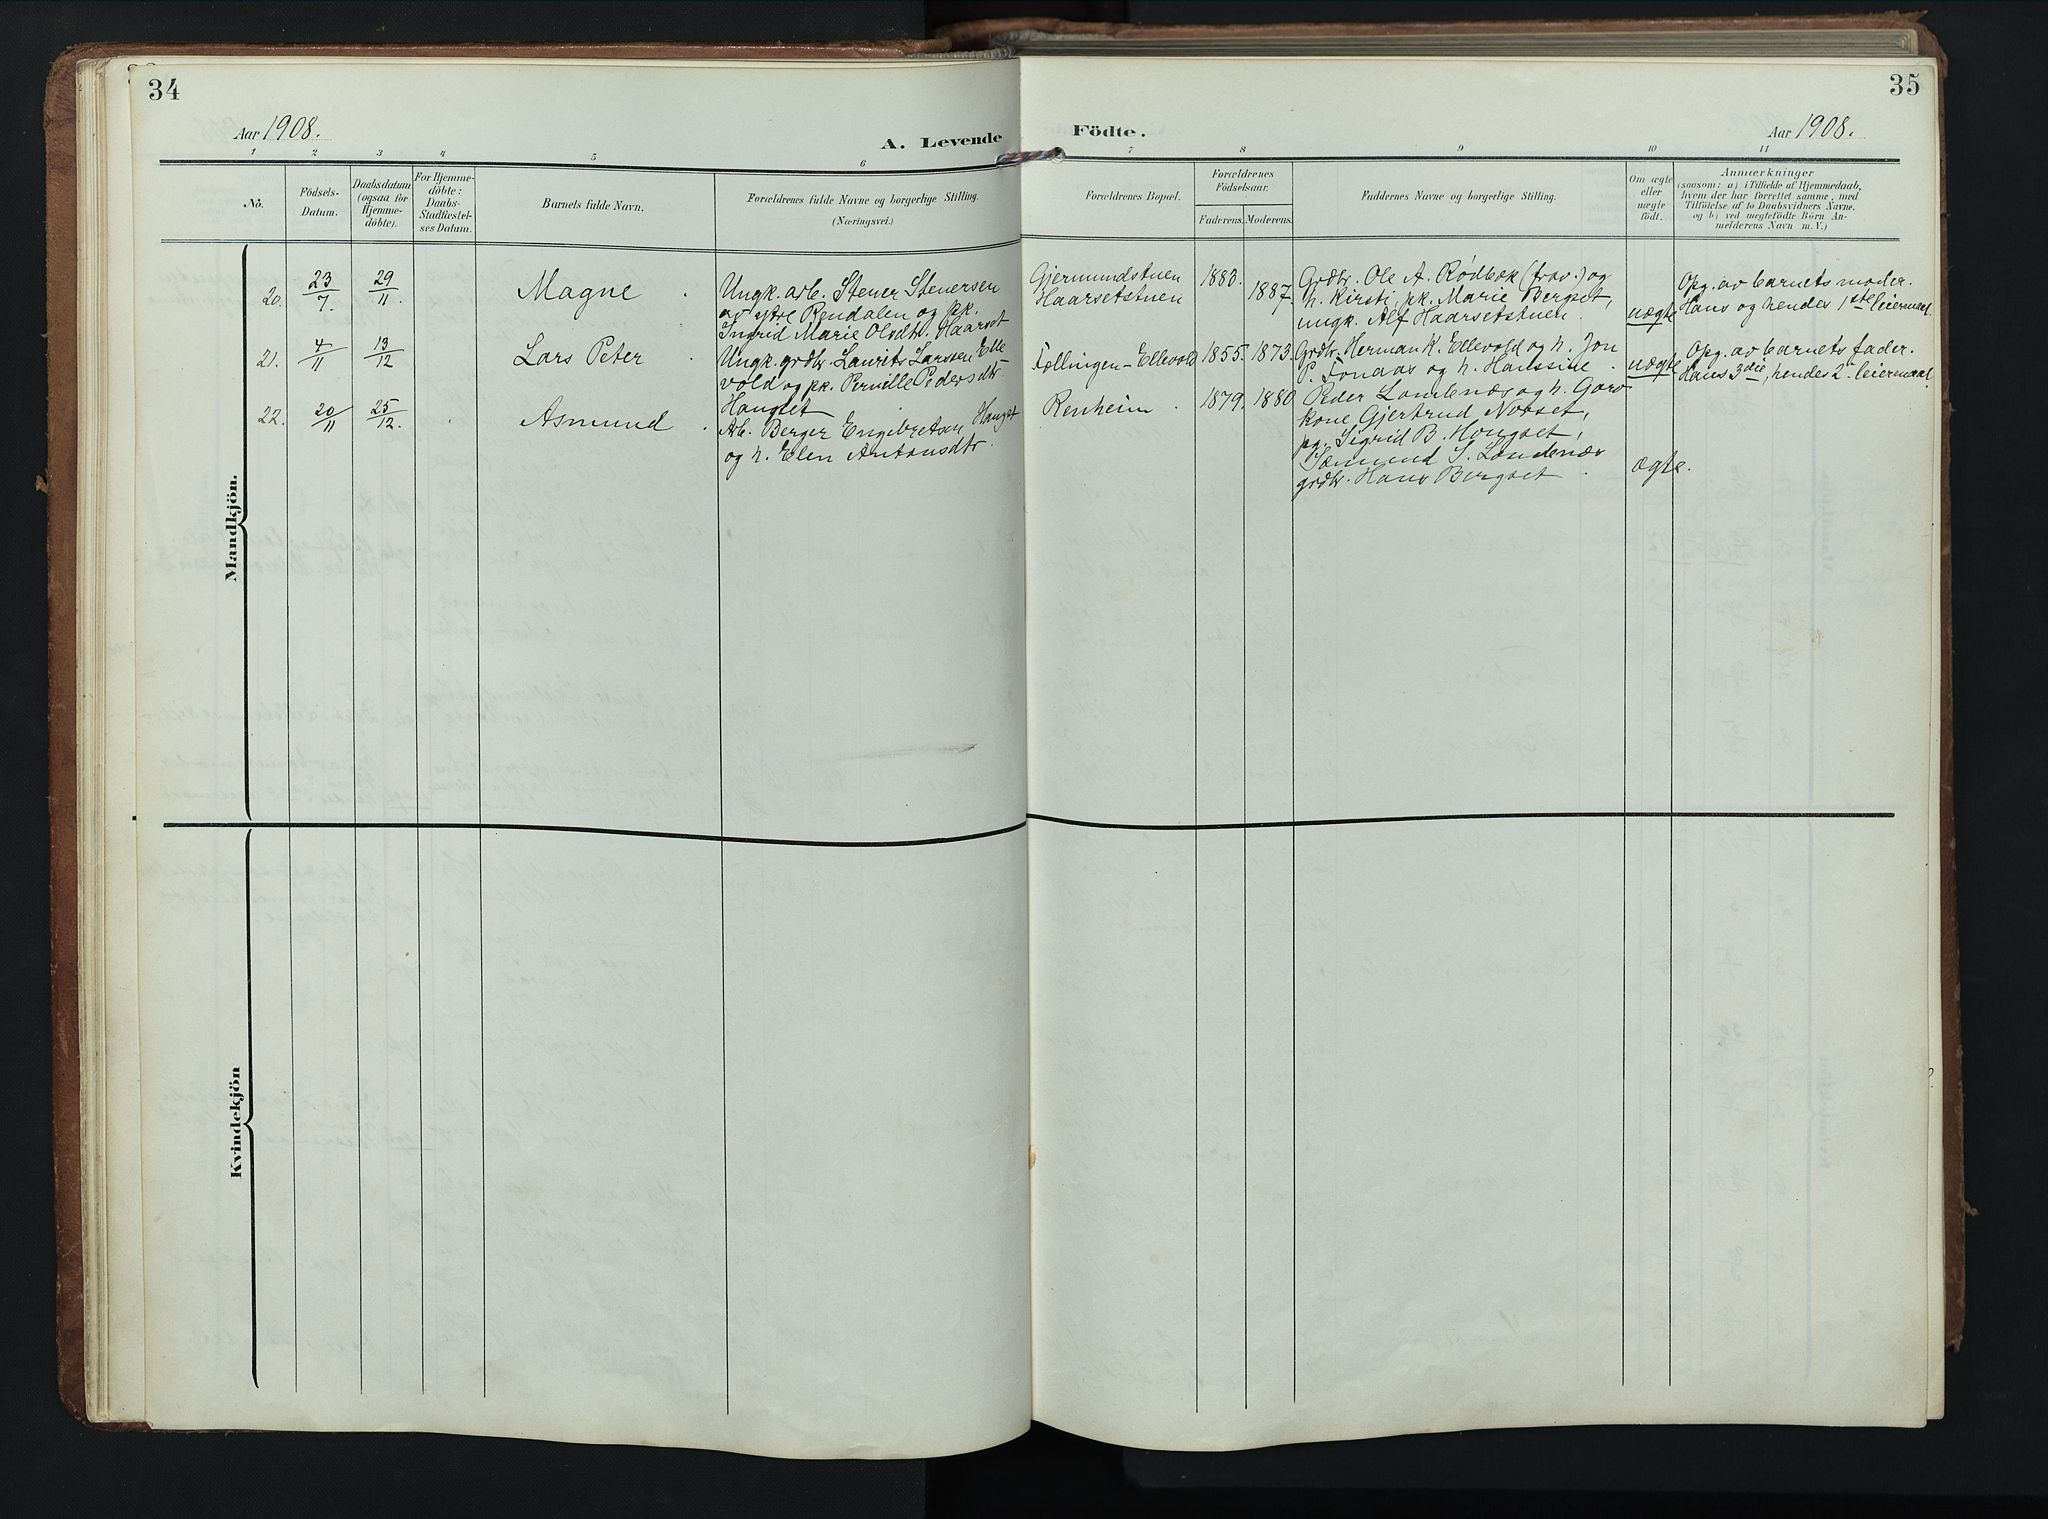 34
35
Aar 1908.
A. Levende
Födte.
Aar 1908.
1 2 3 4 5 6 7 8 9 10 11
Nö.
Födsels-
Datum.
Daabsdatum
(ogsaa for
Hjemme-
döbte).
For Hjemme-
döbte:
Daabs-
Stadfæstel-
ses Datum.
Barnets fulde Navn.
Forældrenes fulde Navne og borgerlige Stilling.
(Næringsvei.)
Forældrenes Bopæl.
Forældrenes
Födselsaar.
Faderens. Moderens.
Faddernes Navne og borgerlige Stilling.
Om ægte
eller
uægte
födt.
Anmærkninger
(saasom: a) i Tilfælde af Hjemmedaab,
hvem der har forrettet samme, med
Tilföielse af to Daabsvidners Navne.
og b) ved uægtefödte Börn An-
melderens Navn m. V.)
Mandkjön.
20. 23/7. 29/11. Magne
Ungk. arb. Stener Stenersen
av ytre Rendalen og pk.
Ingrid Marie Olsdtr. Haarset
Gjermundstuen
Haarsetstuen
1883. 1887.
Grdbr. Ole A. Rødbæk (frav.) og
h. Kirsti, pk. Marie Bergset,
ungk. Alf Haarsetstuen.
uægte
Opg. av barnets moder.
Hans og hendes 1ste leiermaal.
21. 4/11 13/12 Lars Peter
Ungk. grdbr. Laurits Larssen Elle-
vold og pk. Pernille Pedersdtr.
Haugset
Føllingen - Ellevold
1855. 1873.
Grdbr. Herman K. Ellevold og h. Jon
P. Fonaas og h. Hanssine.
uægte
Opg. av barnets fader.
Hans 3die, hendes 2. leiermaal.
22. 20/11 25/12. Asmund
Arb. Berger Engebretsen Haugset
og h. Elen Antonsdtr.
Renheim.
1879. 1880.
Peder Lomdenæs og h. Garv
kone Gjertrud Nobset,
pg. Sigrid B. Hougset,
Sæmund S. Londenæs
grdbr. Hans Bergset.
ægte.
Kvindekjön